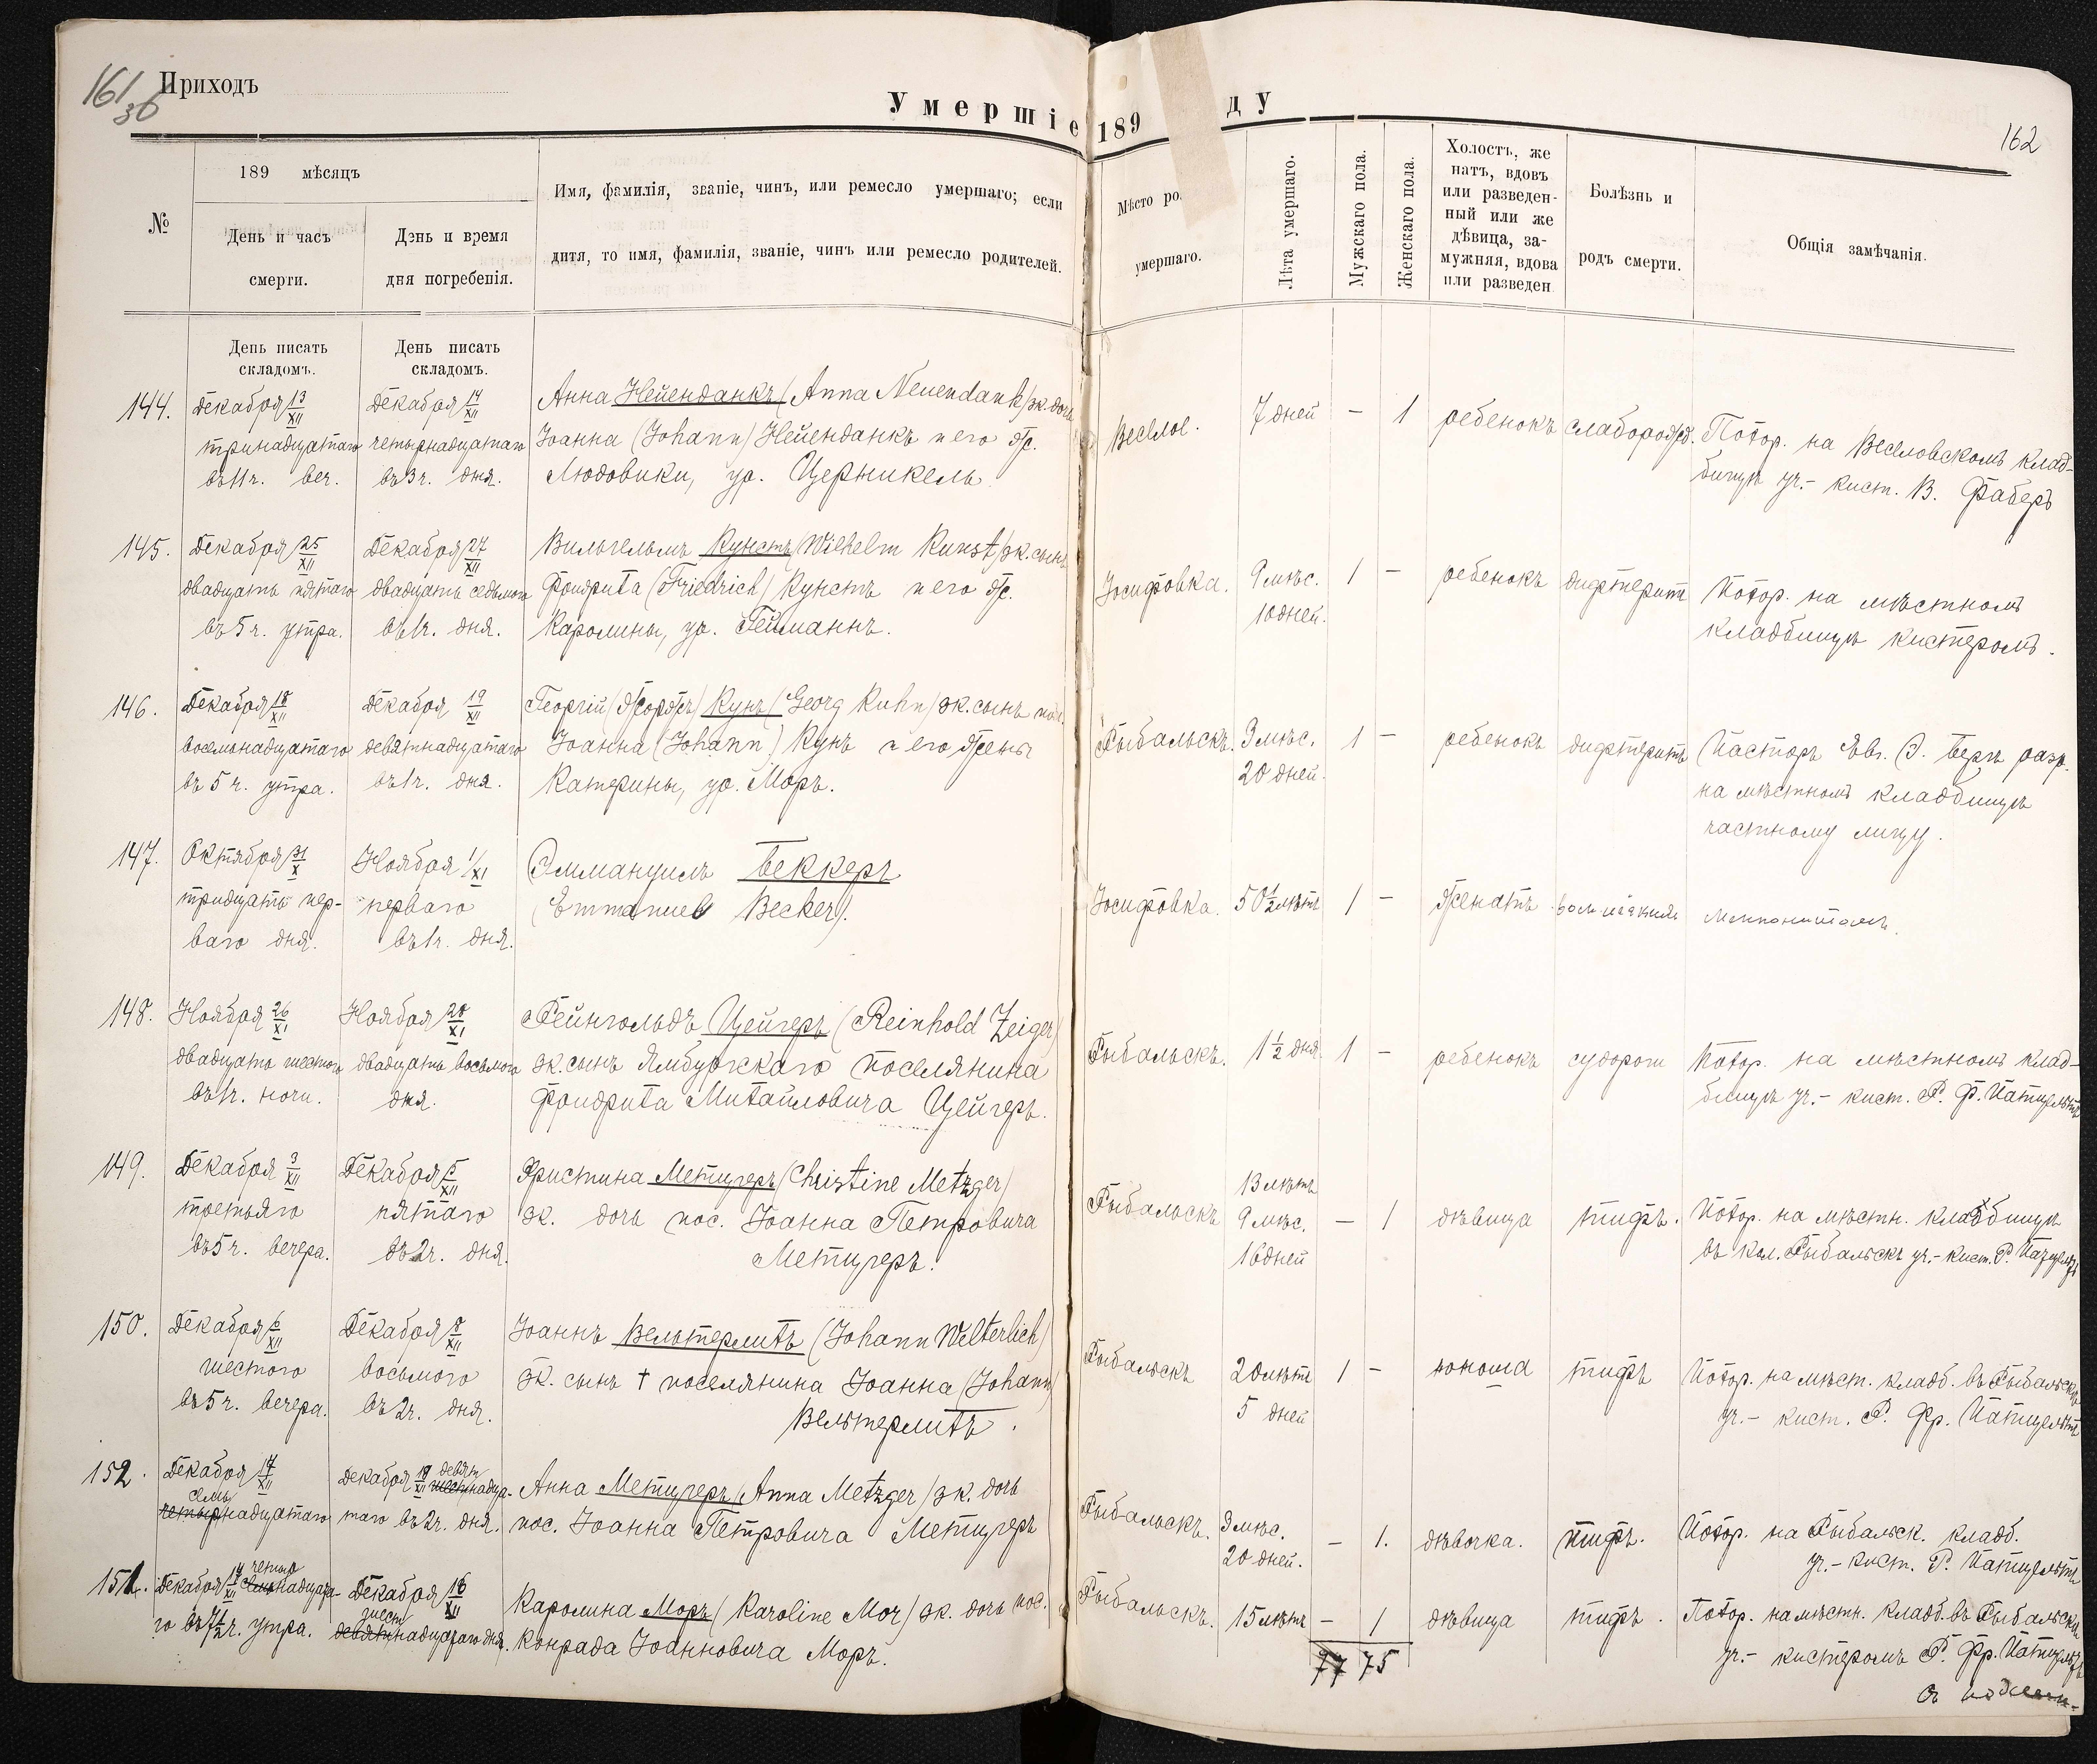 161
36
Приходъ
Умершіе 189 ду
162
№
189 мѣсяцъ
День и часъ
смерти.
День и время
дня погребенія.
Имя, фамилія, званіе, чинъ, или ремесло умершаго; если
дитя, то имя, фамилія, званіе, чинъ или ремесло родителей.
Мѣсто ро
умершаго.
Лѣта умершаго.
Мужскаго пола.
Женскаго пола.
Холостъ, же
натъ, вдовъ
или разведен-
ный или же
дѣвица, за-
мужняя, вдова
или разведен
Болѣзнь и
родъ смерти.
Общія замѣчанія.
День писать
складомъ.
День писать
складомъ.
144. Декабря 13/XII Декабря 14/XII Анна Нейенданкъ (Anna Neuendank) зк. дочь
тринадцатаго четырнадцатаго Іоанна (Johann) Нейенданкъ и его ж.
въ 11 ч. веч. въ 3 ч. дня. Людовики, ур. Церникель
Веселое. 7 дней — 1 ребенокъ слаборожд. Похор. на Веселовскомъ клад-
бищѣ уч.- кист. В. Фаберъ
145. Декабря 25/XII Декабря 27/XII Вильгельмъ Кунстъ (Wilhelm Kunst) зк. сынъ
двадцать пятаго двадцать седьмого Фридриха (Friedrich) Кунстъ и его ж.
въ 5 ч. утра. въ 1 ч. дня. Каролины, ур. Гейманнъ.
Іосифовка. 9 мѣс. 1 — ребенокъ дифтеритъ Похор. на мѣстномъ
10 дней. кладбищѣ кистеромъ.
146. Декабря 18/XII Декабря 19/XII Георгій (Жоржъ) Кунъ (Georg Kuhn) зк. сынъ пос.
восемьнадцатаго девятнадцатаго Іоанна (Johann) Кунъ и его жены
въ 5 ч. утра. въ 1 ч. дня. Катерины, ур. Моръ.
Рыбальскъ. 3 мѣс. 1 — ребенокъ дифтеритъ Пасторъ Евг. Э. Бергъ разр.
20 дней. на мѣстномъ кладбищѣ
частному лицу.
147. Октября 31/X Ноября 1/XI Эммануилъ Беккеръ
тридцать пер- перваго (Emmanuel Becker).
ваго дня. въ 1 ч. дня.
Іосифовка. 50 1/2 лѣтъ 1 — женатъ
148. Ноября 26/XI Ноября 28/XI Рейнгольдъ Цейгеръ (Reinhold Zeiger)
двадцать шестого двадцать восьмого зк. сынъ Ямбургскаго поселянина
въ 1 ч. ночи. дня. Фридриха Михайловича Цейгеръ.
Рыбальскъ. 1 1/2 дня. 1 — ребенокъ судороги Похор. на мѣстномъ клад-
бищѣ уч.- кист. Р. Ф. Патцельтъ
149. Декабря 3/XII Декабря 5/XII Христина Метцгеръ (Christine Metzger)
третьяго пятаго зк. дочь пос. Іоанна Петровича
въ 5 ч. вечера. въ 2 ч. дня. Метцгеръ.
Рыбальскъ 13 лѣтъ
9 мѣс. — 1 дѣвица тифъ. Похор. на мѣстн. кладбищѣ
16 дней въ кол. Рыбальскъ уч.- кист. Р. Патцельтъ
150. Декабря 6/XII Декабря 8/XII Іоаннъ Вельтерлихъ (Johann Welterlich)
шестого восьмого зк. сынъ † поселянина Іоанна (Johann)
въ 5 ч. вечера. въ 2 ч. дня. Вельтерлихъ.
Рыбальскъ 20 лѣтъ 1 — юноша тифъ Похор. на мѣст. кладб. въ Рыбальскѣ
5 дней уч.- кист. Р. Фр. Патцельтъ
152. Декабря 17/XII Декабря 19/XII девят шестнадца- Анна Метцгеръ (Anna Metzger) зк. дочь
семь четырнадцатаго таго въ 2 ч. дня. пос. Іоанна Петровича Метцгеръ
Рыбальскъ. 3 мѣс. — 1. дѣвочка. тифъ. Похор. на Рыбальск. кладб.
20 дней. уч.- кист. Р. Патцельтъ
151. Декабря 14/XII четыр семнадцата- Декабря 16/XII Каролина Моръ (Karoline Mor) зк. дочь пос.
го въ 7 1/2 ч. утра. шест девятнадцатаго дня. Конрада Іоанновича Моръ.
Рыбальскъ. 15 лѣтъ — 1 дѣвица тифъ. Похор. на мѣстн. кладб. въ Рыбальскѣ
77 75 уч.- кистеромъ Р. Фр. Патцельтъ